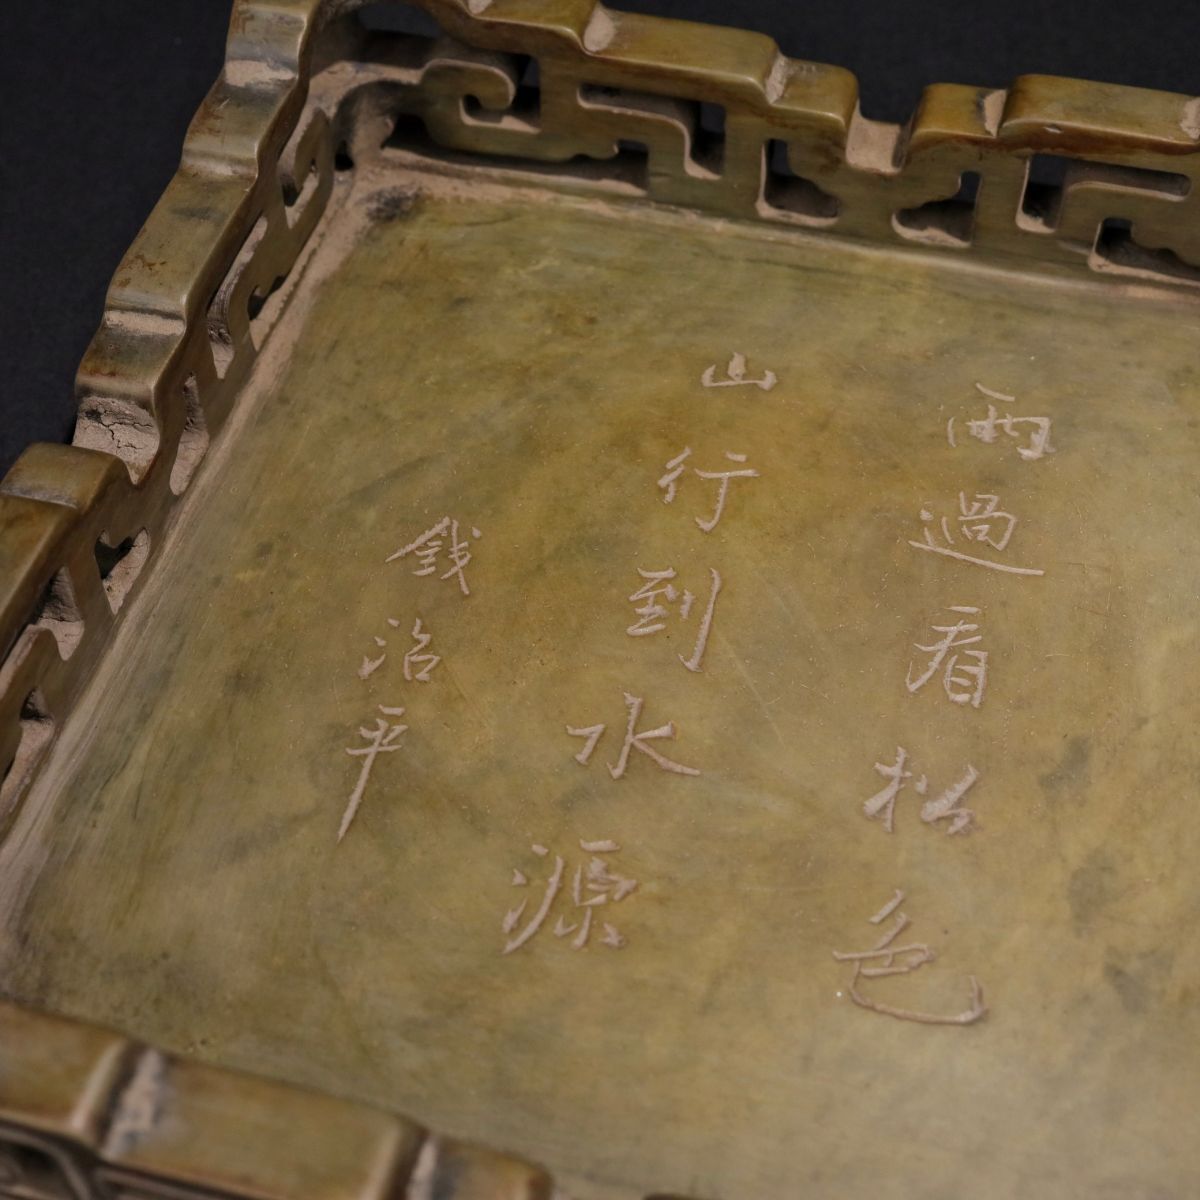 雨過看松色
山行到水源
錢治平